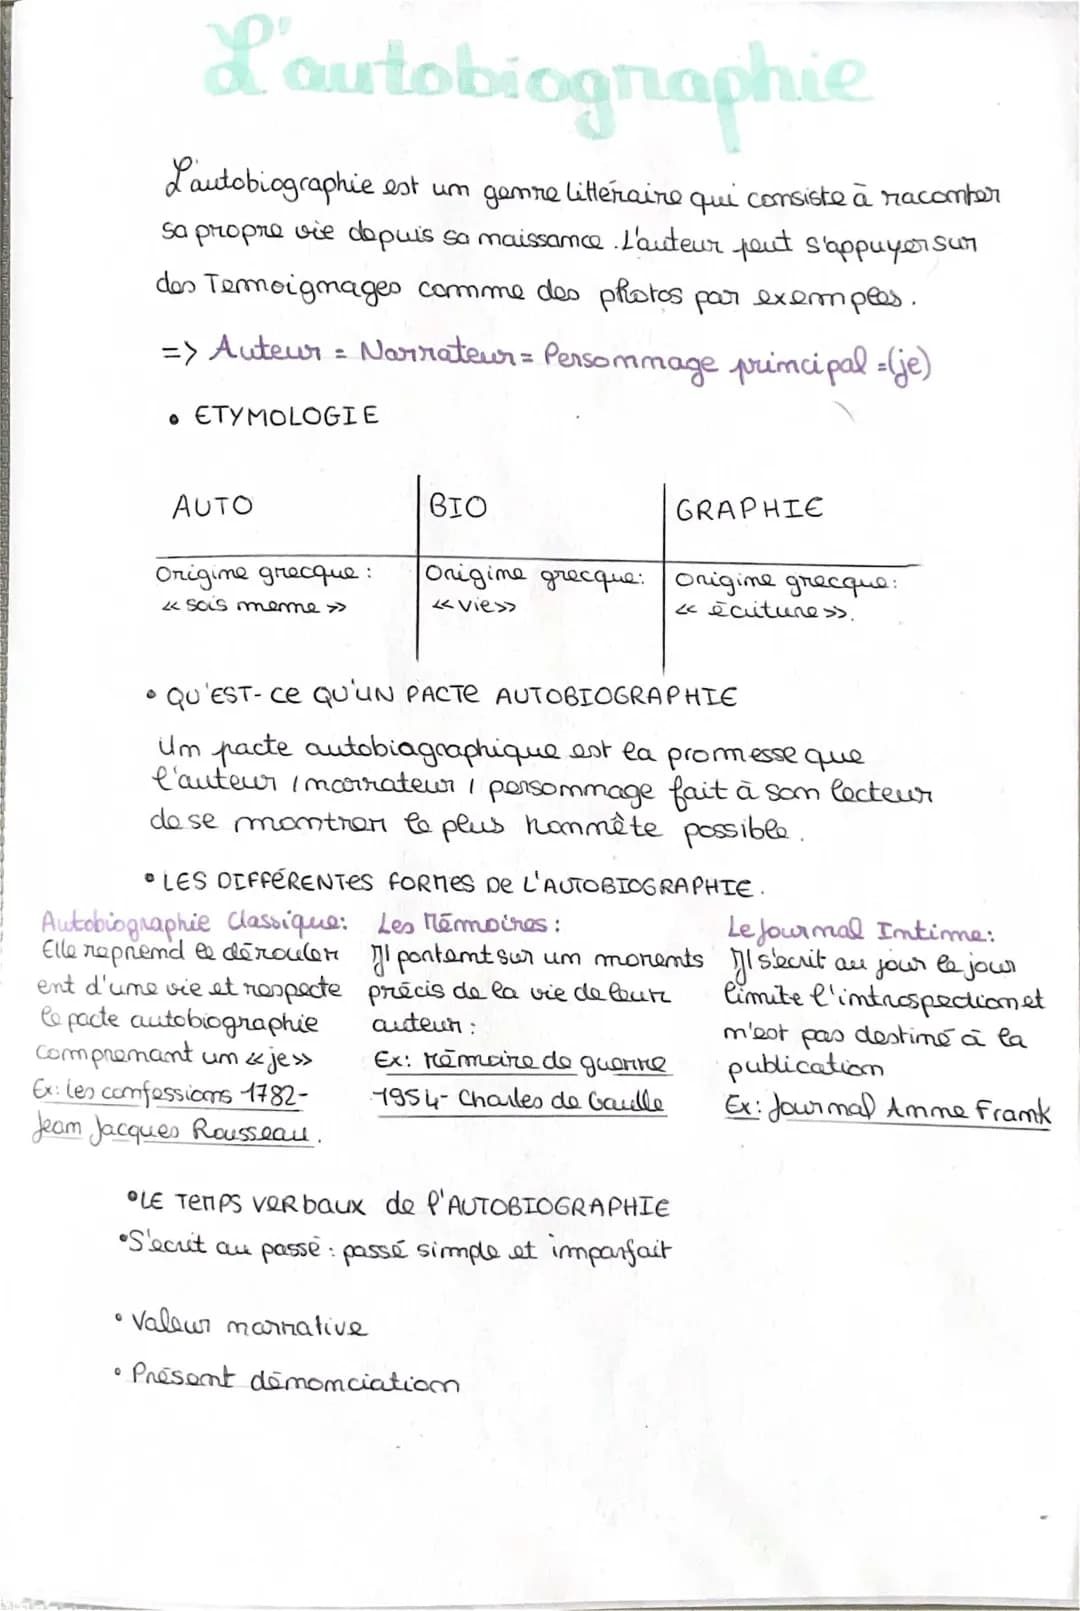 L'autobiographie
L'autobiographie est un genre littéraire qui consiste à raconter
sa propre vie depuis sa naissance. L'auteur peut s'appuyer sur
des Temoignages comme des photos par exemples.
=> Auteur = Narrateur = Personnage principal =(je)
• ETYMOLOGIE
AUTO BIO GRAPHIE
Origine grecque : Origine grecque: Origine grecque:
« sois meme » « vie» « écriture ».
• QU'EST-CE QU'UN PACTE AUTOBIOGRAPHIE
Un pacte autobiographique est la promesse que
l'auteur / narrateur / personnage fait à son lecteur
de se montrer le plus honnête possible.
• LES DIFFÉRENTES FORMES DE L'AUTOBIOGRAPHIE.
Autobiographie Classique:
Elle reprend le dérouler
ent d'une vie et respecte
le pacte autobiographie
comprenant un «je»
Ex: les confessions 1782-
Jean Jacques Rousseau.
Les Mémoires :
Il portent sur un moments
précis de la vie de leur
auteur :
Ex: Mémoire de guerre
1954- Charles de Gaulle
Le Journal Intime:
Il s'écrit au jour le jour
limite l'introspection et
n'est pas destiné à la
publication
Ex: Journal Anne Frank
•LE TEMPS verbaux de l'AUTOBIOGRAPHIE
•S'écrit au passé : passé simple et imparfait
• Valeur narrative
• Présent dénonciation